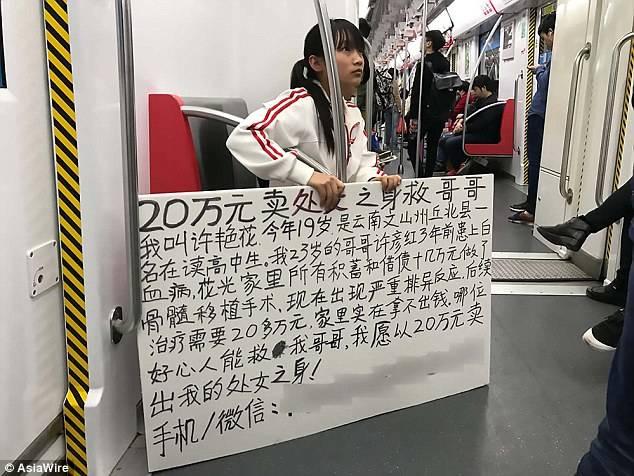 20万元卖处女之身救哥哥
我叫许艳花,今年19岁是云南文山州丘北县一
名在读高中生。我23岁的哥哥许彦红3年前患上白
血病,花光家里所有积蓄和借债十几万元做了
骨髓移植手术,现在出现严重排异反应,后续
治疗需要20多万元,家里实在拿不出钱。哪位
好心人能救我哥哥,我愿以20万元卖
出我的处女之身!
手机/微信:
© AsiaWire